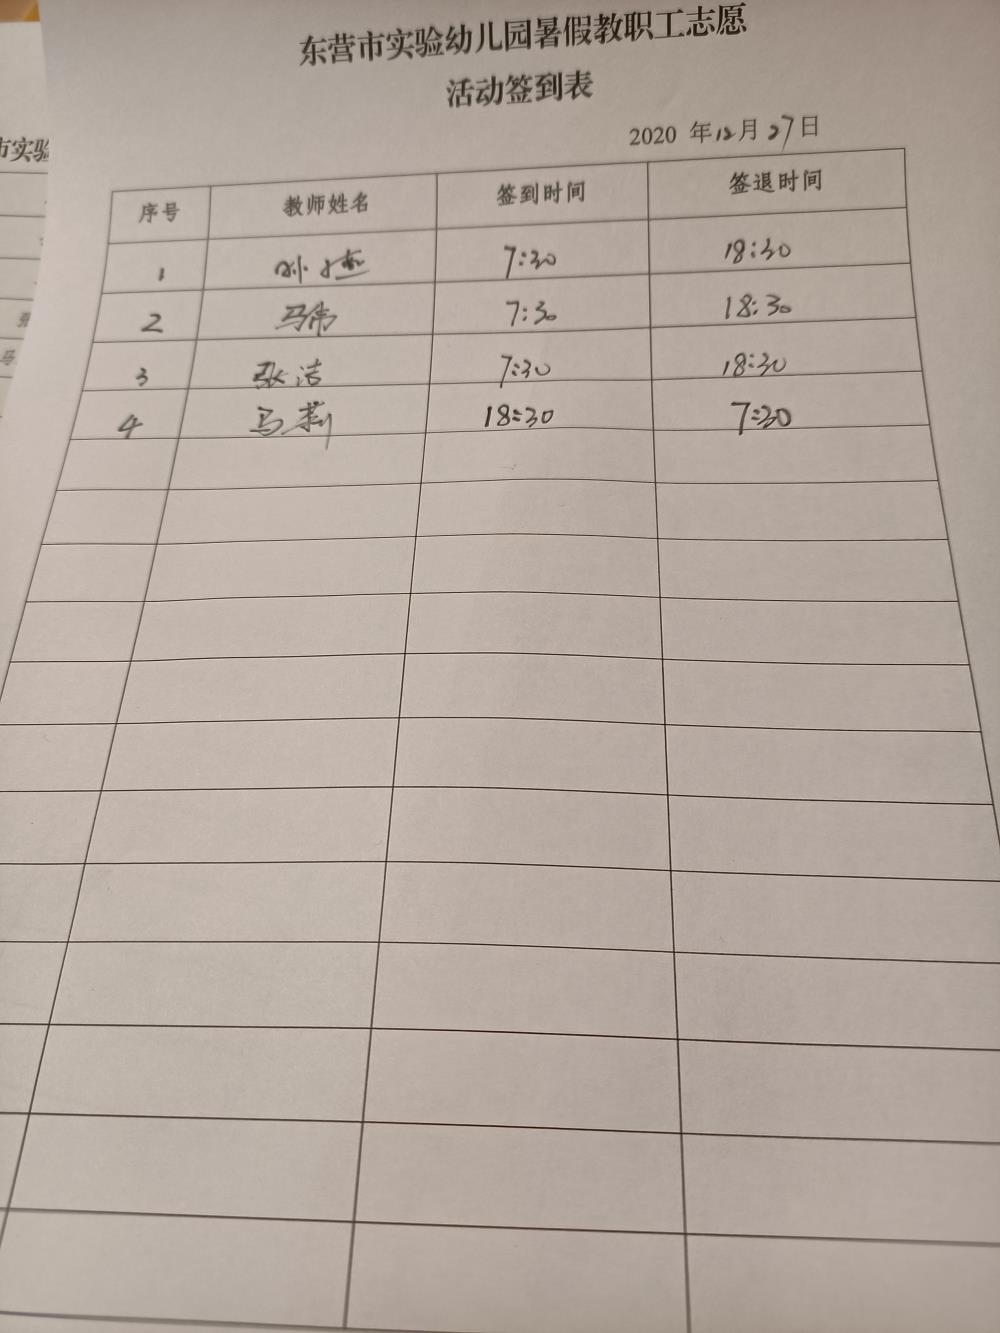 东营市实验幼儿园暑假教职工志愿
活动签到表
2020 年12月27日
序号 教师姓名 签到时间 签退时间
1 孙 7:30 18:30
2 马伟 7:30 18:30
3 张洁 7:30 18:30
4 马莉 18:30 7:30
市实验
张
马